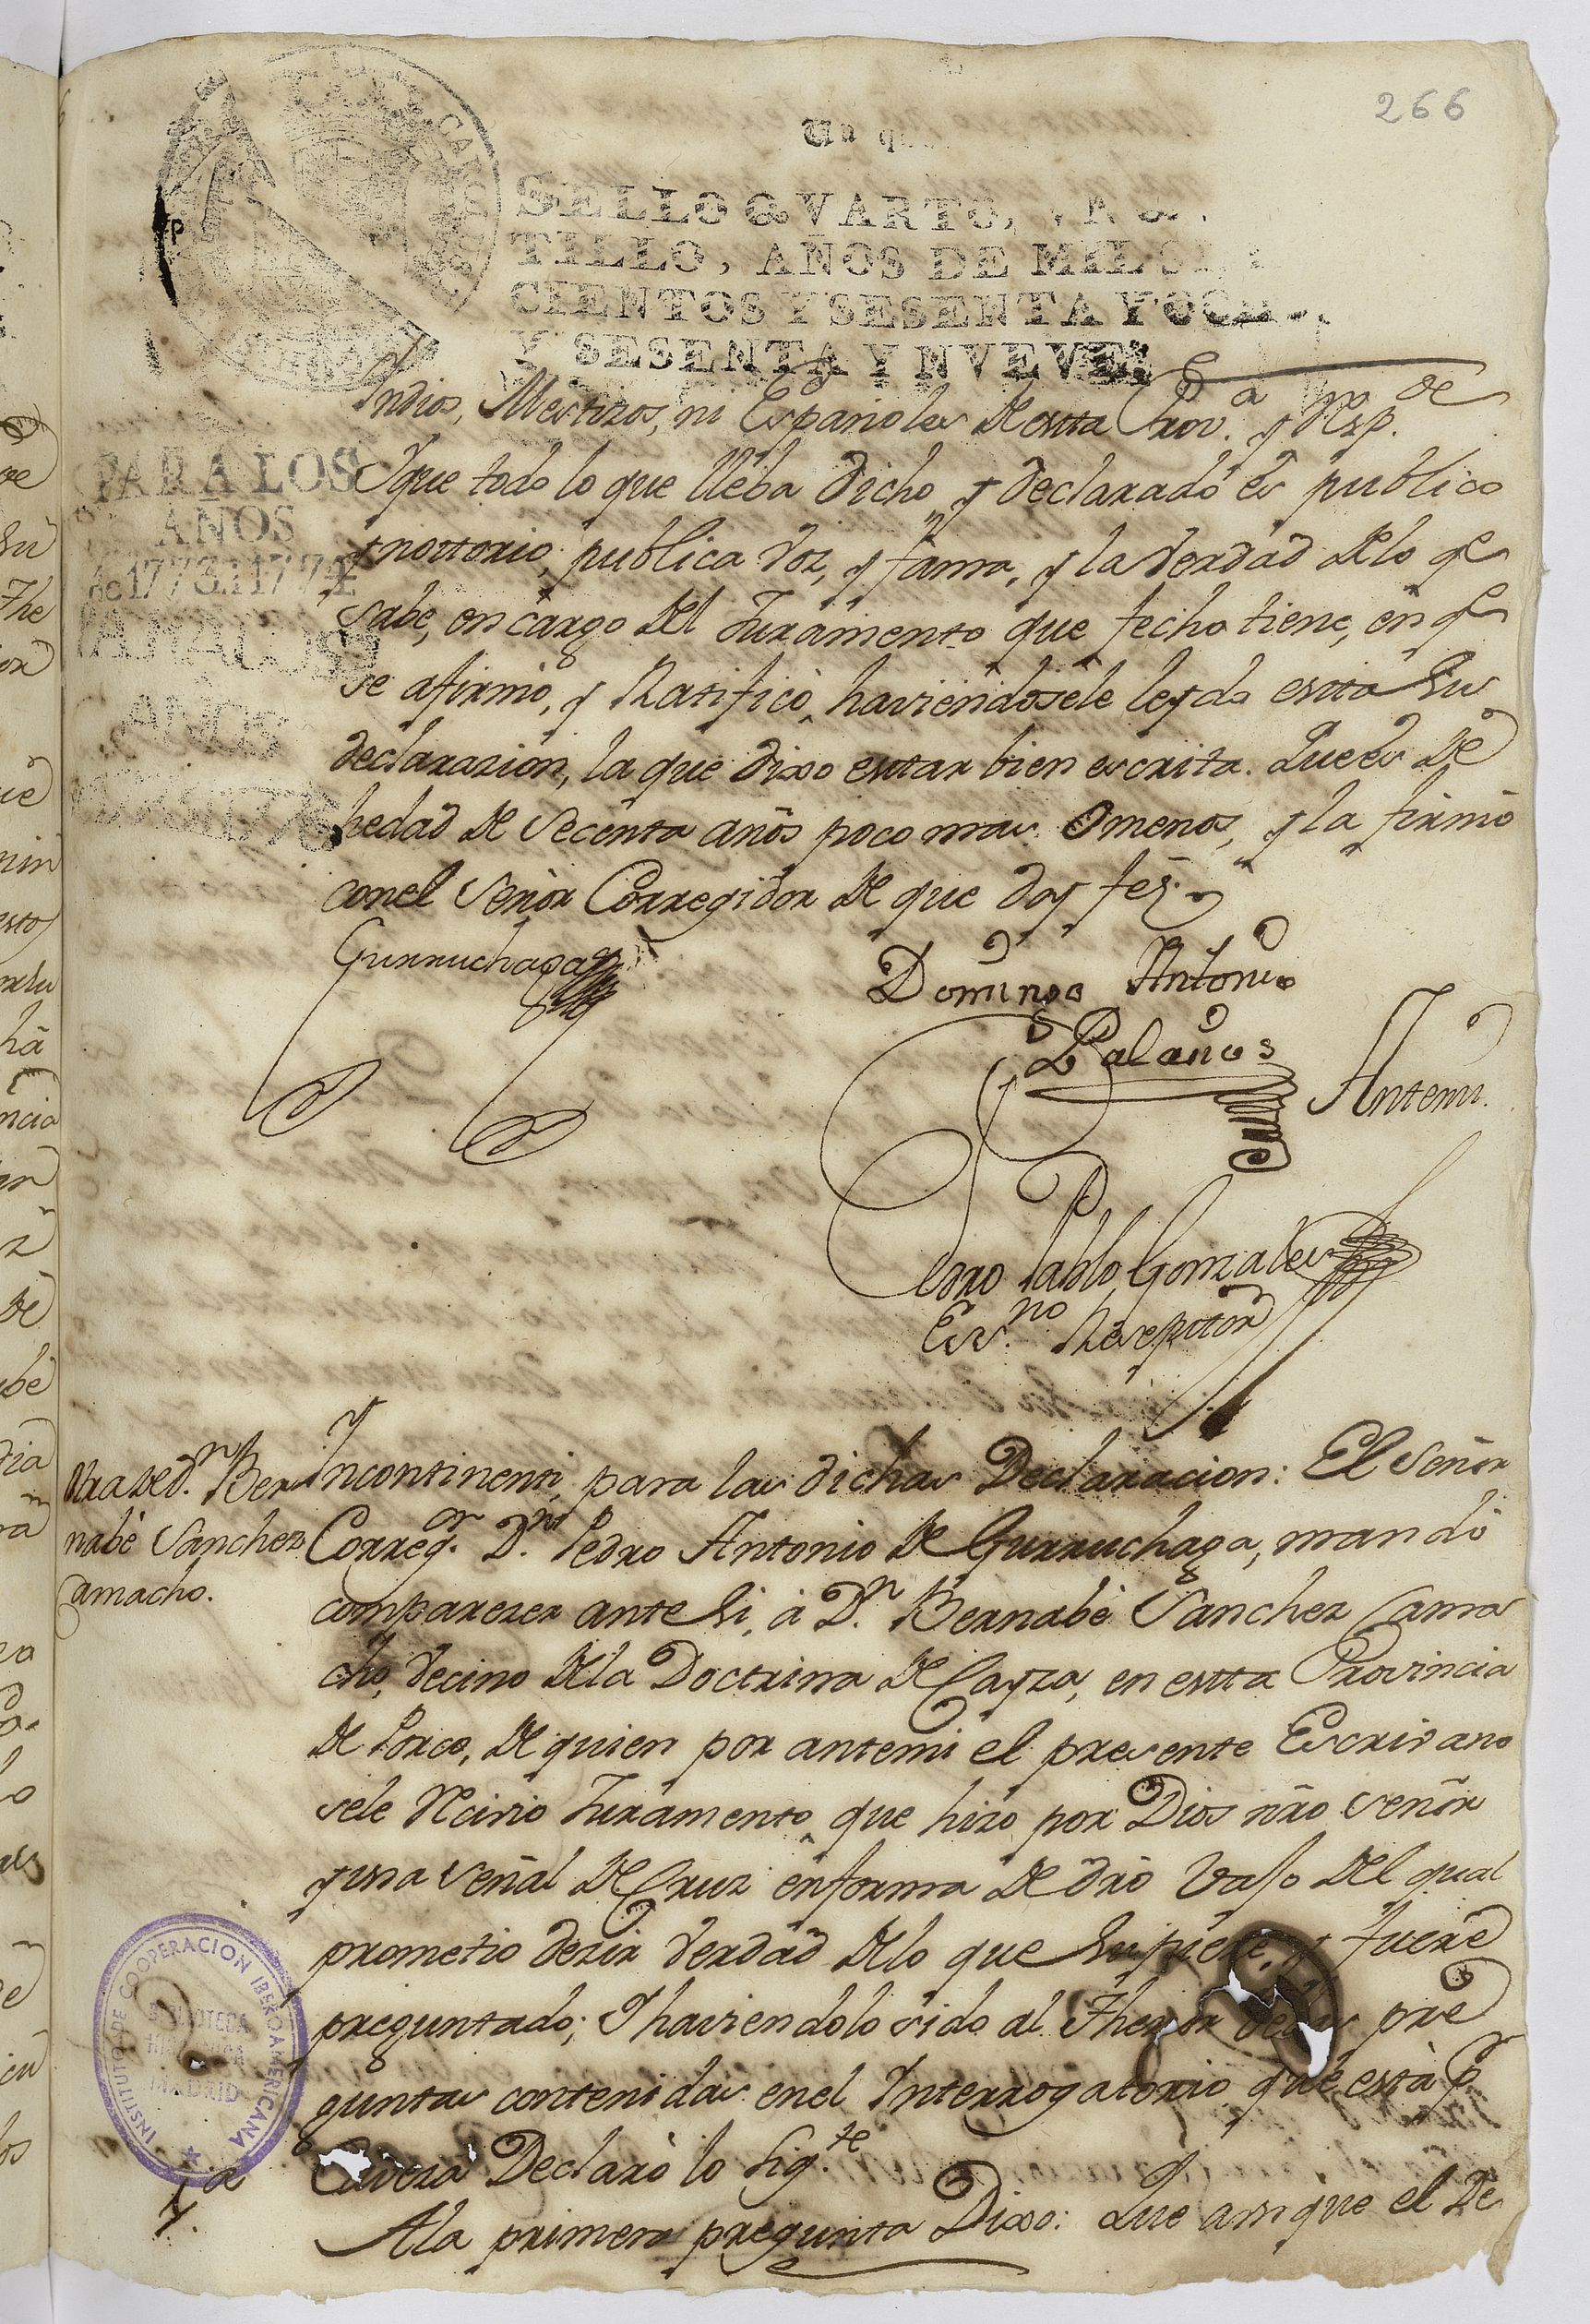 266
Un qu
SELLO QVARTO, VN
TILLO, AÑOS DE MIL SE
CIENTOS Y SESENTA Y OCHO
Y SESENTA Y NVEVE.
PARA LOS
AÑOS
de 1773. i 1774
PARA LOS
AÑOS
Indios, Mestizos, ni Españoles de estta Prov.ª y Resp.de
Yque todo lo que lleba dicho, y declarado es publico
y nottorio, publica voz, y fama, y la verdad delo qe
sabe, en cargo del Juramento que fecho tiene, en qe
se afirmò, y Ratificò, haviendosele leydo estta su
declarazion, la que dixo esttar bien escrita. Que es de
hedad de Secenta años poco mas. Omenos, y la firmò
conel Señor Corregidor de que doy feé.
Gurruchaga
Domingo Antonio
Bolaños
Antemi.
Pedro Pablo Gonzales
Ess.no Reseptor
Otra de d.n Ber
nabè Sanchez
Camacho.
Yncontinenti, para las dichas Declaracion: El Señor
Correg.or D.n Pedro Antonio de Gurruchaga, mandò
comparezer ante si, à D.n Bernabè Sanchez Cama
cho, vecino dela Doctrina de Cayza, en estta Provincia
de Porco, de quien por antemi el presente Escrivano
sele Recivio Juramento, que hizo por Dios nrõ Señor
y una señal de Cruz enforma de drõ vajo del qual
prometio dezir verdad delo que supiere, y fuere
preguntado; Y haviendolo sido al Thenor delas pre
guntas contenidas enel Interrogatorio que està p
Caveza Declarò lo sig.te
1.ª
Ala primera pregunta Dixo: Que aunque el De
INSTITUTO DE COOPERACION IBEROAMERICANA
BIBLIOTECA
HISPANICA
MADRID